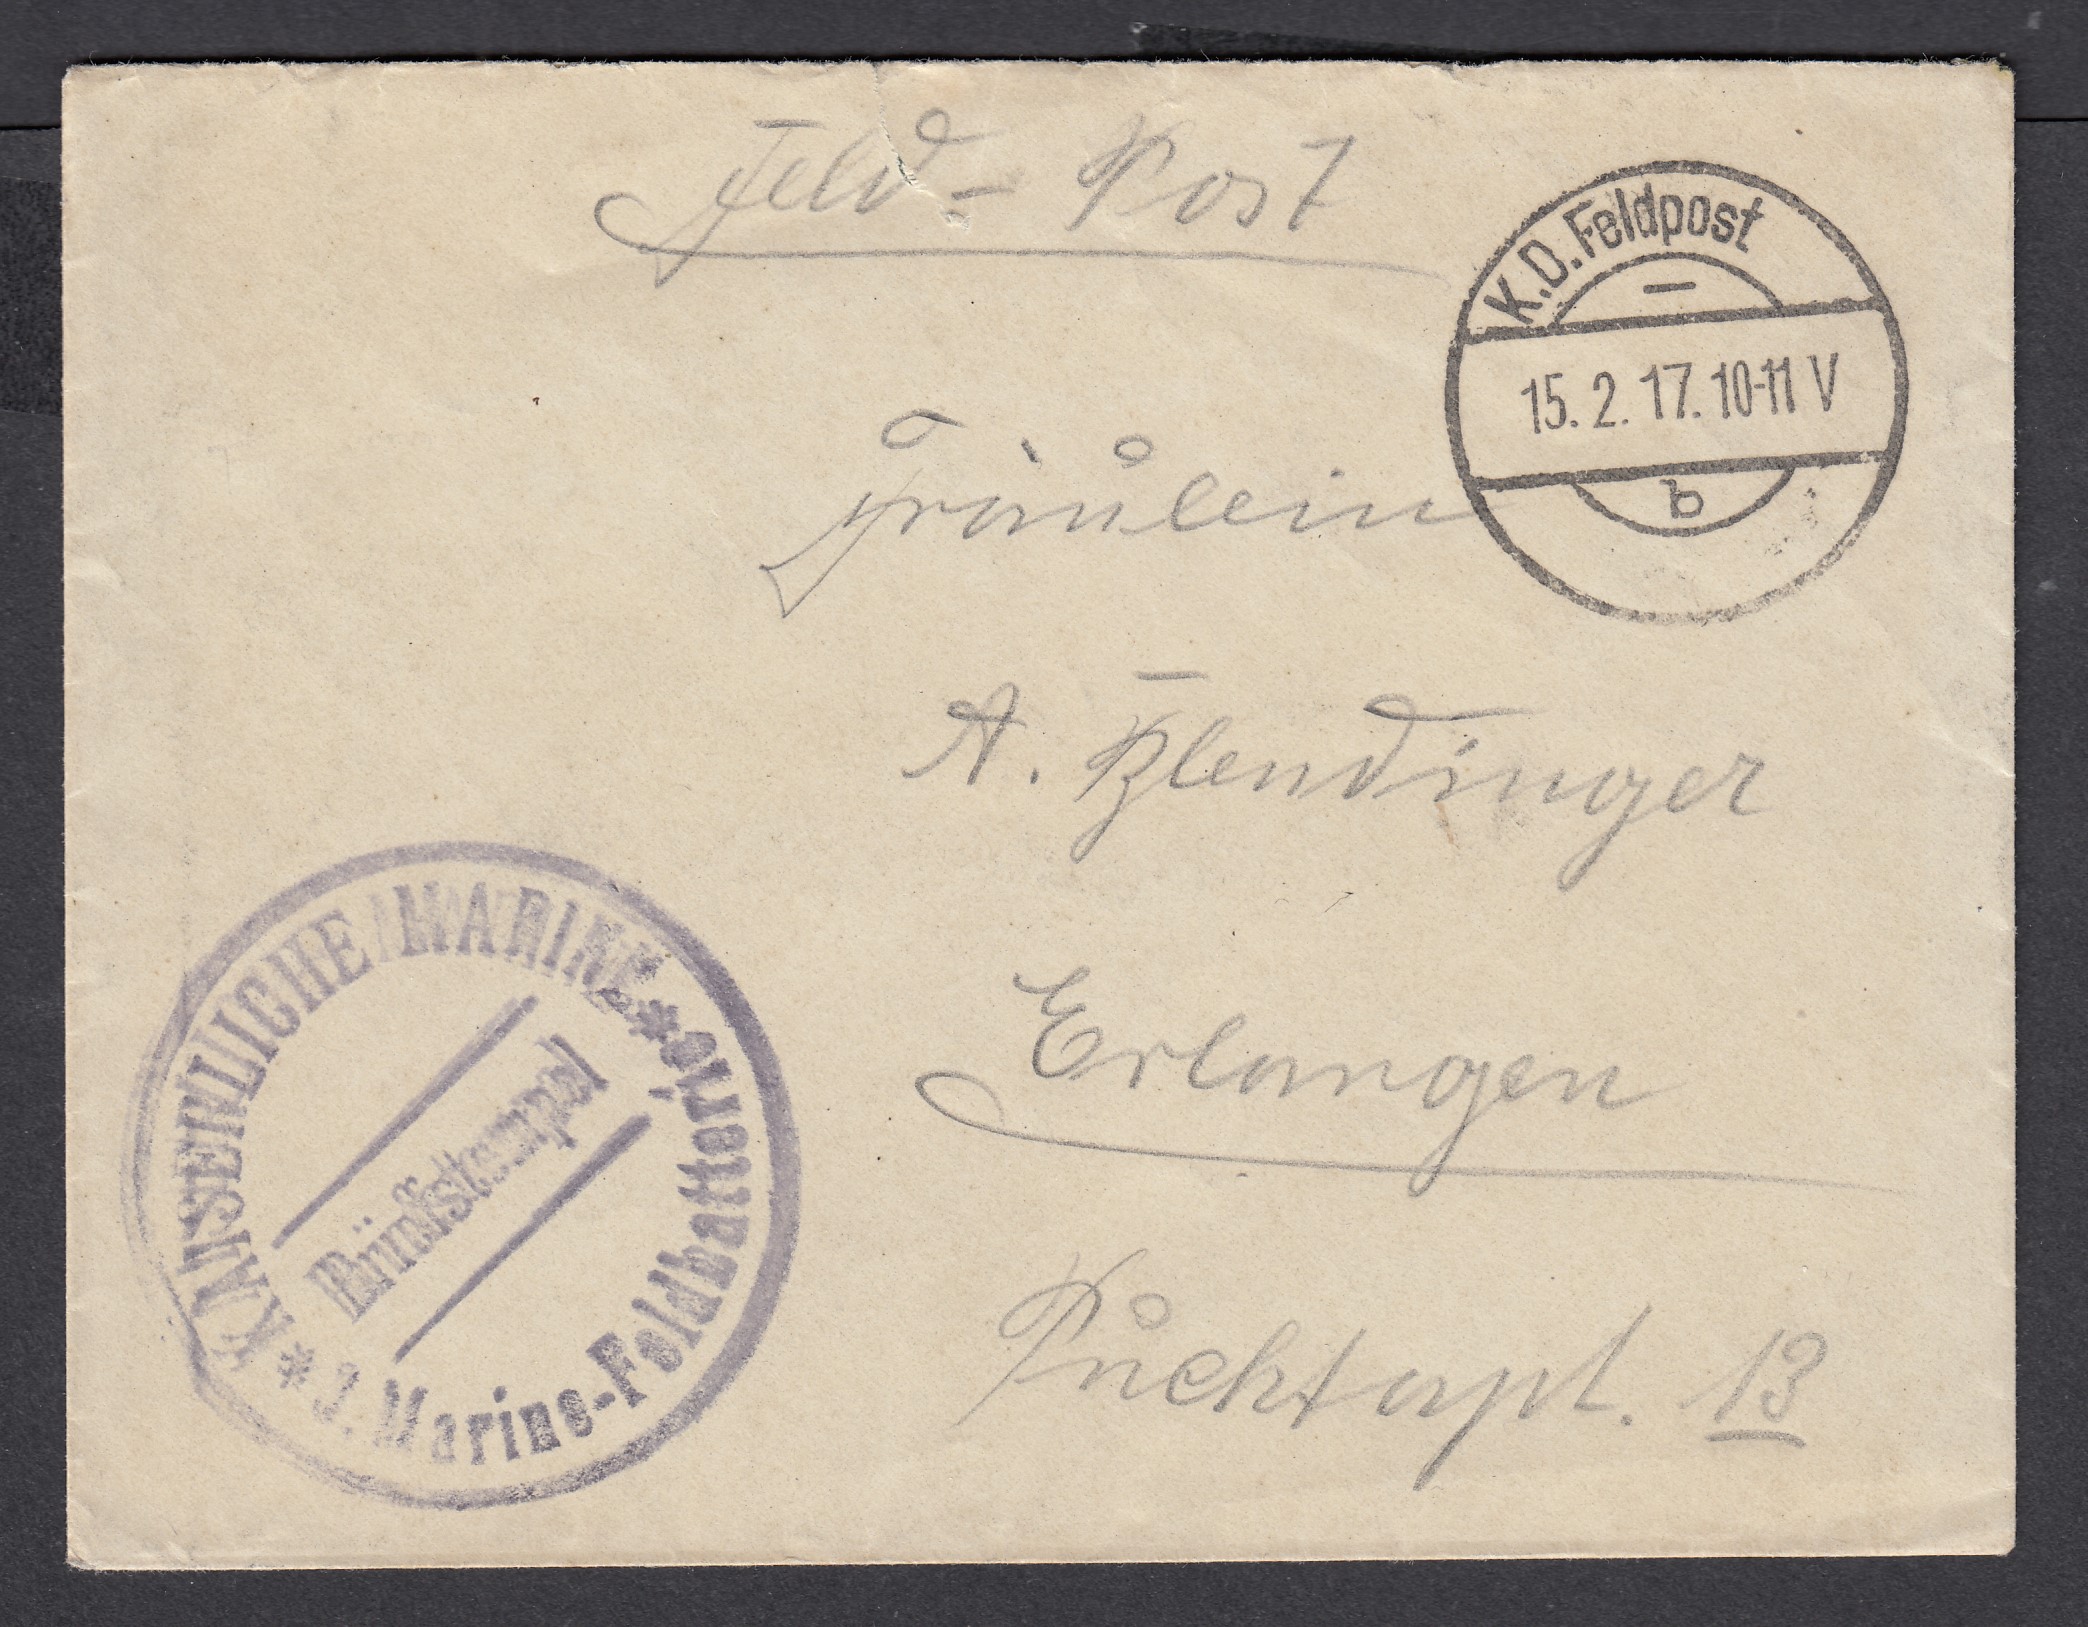 Feld-Post
K.D. Feldpost
15. 2. 17. 10-11 V
b
Fräulein
A. Blendinger
Erlangen
Puchtapl. 13
* KAISERLICHE MARINE *
Briefstempel
3. Marine-Feldbatterie